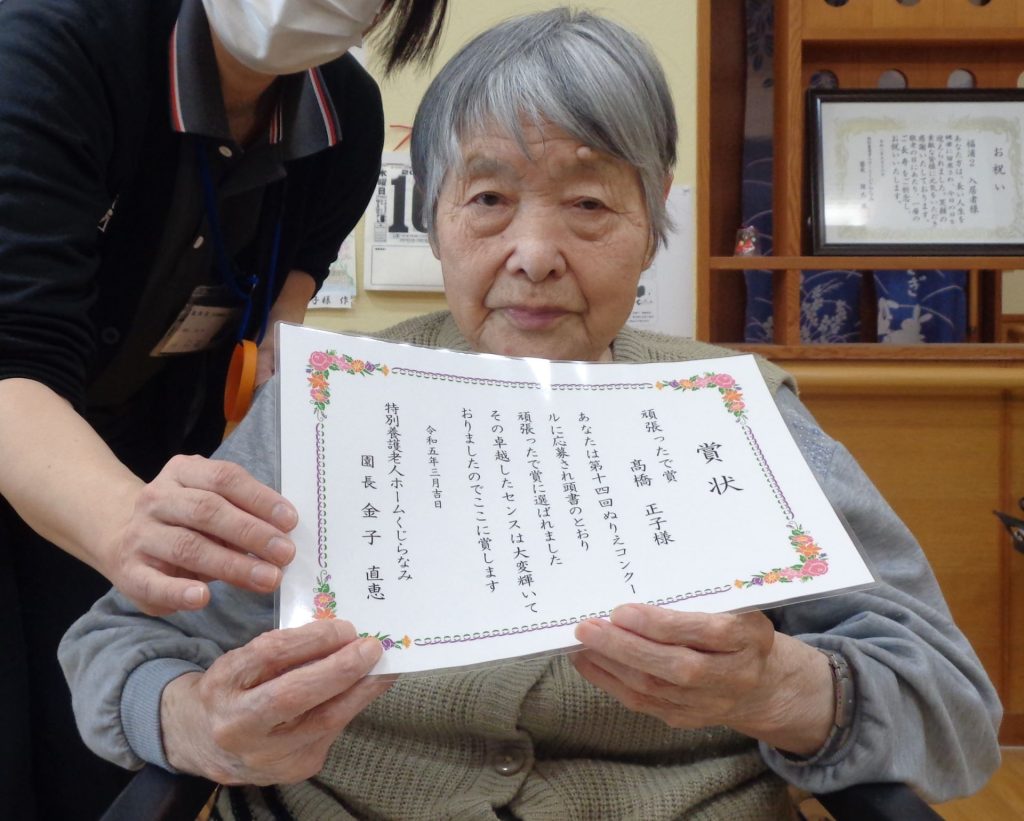 賞状
頑張ったで賞
髙橋 正子様
あなたは第十四回ぬりえコンクー
ルに応募され頭書のとおり
頑張ったで賞に選ばれました
その卓越したセンスは大変輝いて
おりましたのでここに賞します
令和五年三月吉日
特別養護老人ホームくじらなみ
園長 金子 直恵
お祝い
福浦2 入居者様
あなた方は、長い人生を
お祝いいたします。
水曜日
子様 作